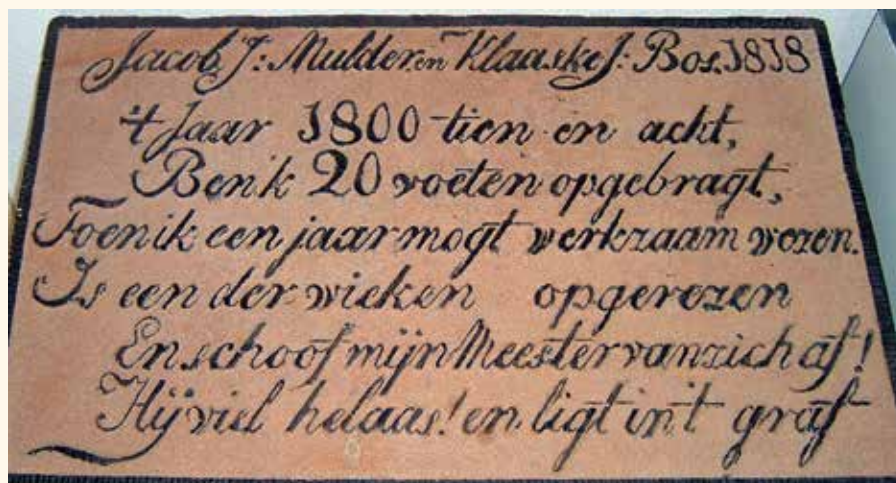 Jacob J: Mulder en Klaaske J: Bos. 1818
't Jaar 1800 tien en acht,
Ben ik 20 voeten opgebragt,
Toen ik een jaar mogt werkzaam wezen.
Is een der wieken opgerezen
En schoof mijn Meester van zich af!
Hij viel helaas! en ligt in't graf